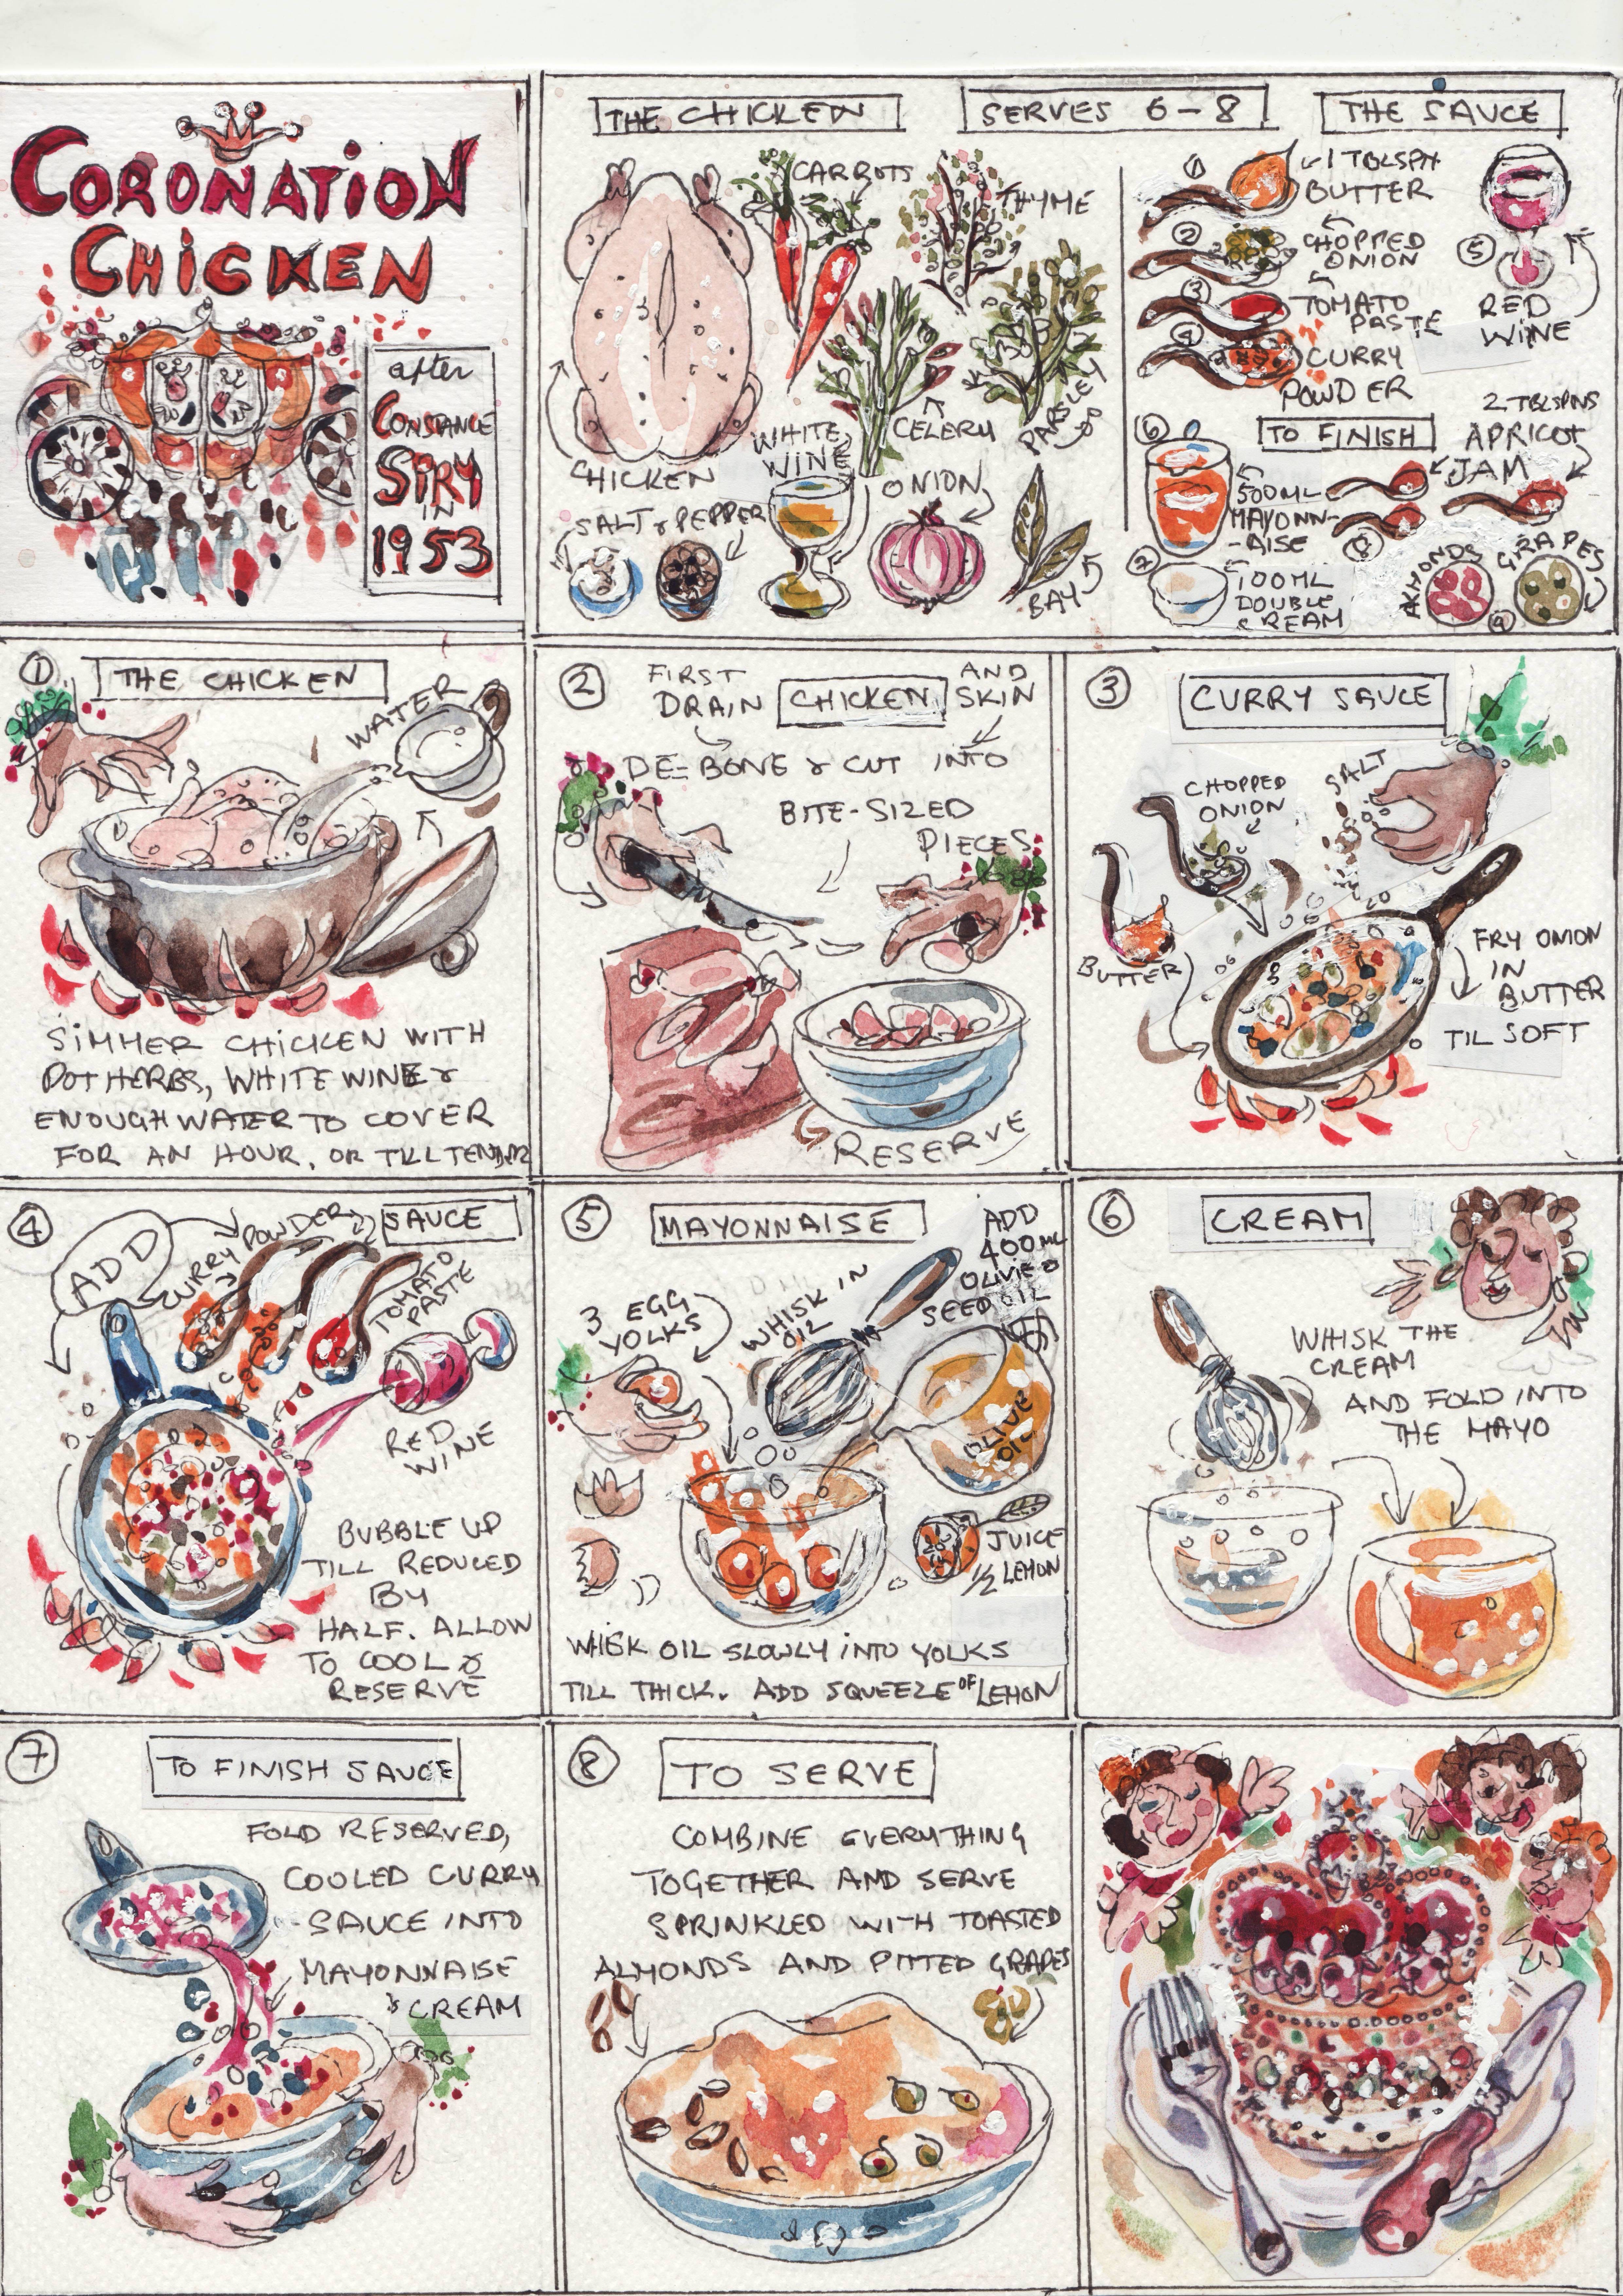 CORONATION
CHICKEN
after
CONSTANCE
SPRY
IN
1953
THE CHICKEN
SERVES 6-8
THE SAUCE
CARROTS
THYME
CHICKEN
WHITE
WINE
CELERY
PARSLEY
SALT & PEPPER
ONION
BAY
1
1 TBLSPN
BUTTER
2
CHOPPED
ONION
3
TOMATO
PASTE
4
CURRY
POWDER
5
RED
WINE
TO FINISH
6
500ML
MAYONN-
-AISE
7
100ML
DOUBLE
CREAM
2 TBLSPNS
APRICOT
JAM
8
ALMONDS
GRAPES
9
1
THE CHICKEN
WATER
SIMMER CHICKEN WITH
POT HERBS, WHITE WINE &
ENOUGH WATER TO COVER
FOR AN HOUR, OR TILL TENDER
2
FIRST
DRAIN CHICKEN AND
SKIN
DE-BONE & CUT INTO
BITE-SIZED
PIECES
RESERVE
3
CURRY SAUCE
CHOPPED
ONION
SALT
BUTTER
FRY ONION
IN
BUTTER
TIL SOFT
4
ADD
CURRY POWDER
SAUCE
TOMATO
PASTE
RED
WINE
BUBBLE UP
TILL REDUCED
BY
HALF. ALLOW
TO COOL &
RESERVE
5
MAYONNAISE
ADD
400ML
OLIVE &
SEED OIL
3 EGG
YOLKS
WHISK IN
OIL
OLIVE
OIL
JUICE
1/2 LEMON
WHISK OIL SLOWLY INTO YOLKS
TILL THICK. ADD SQUEEZE OF LEMON
6
CREAM
WHISK THE
CREAM
AND FOLD INTO
THE MAYO
7
TO FINISH SAUCE
FOLD RESERVED,
COOLED CURRY
SAUCE INTO
MAYONNAISE
& CREAM
8
TO SERVE
COMBINE EVERYTHING
TOGETHER AND SERVE
SPRINKLED WITH TOASTED
ALMONDS AND PITTED GRAPES